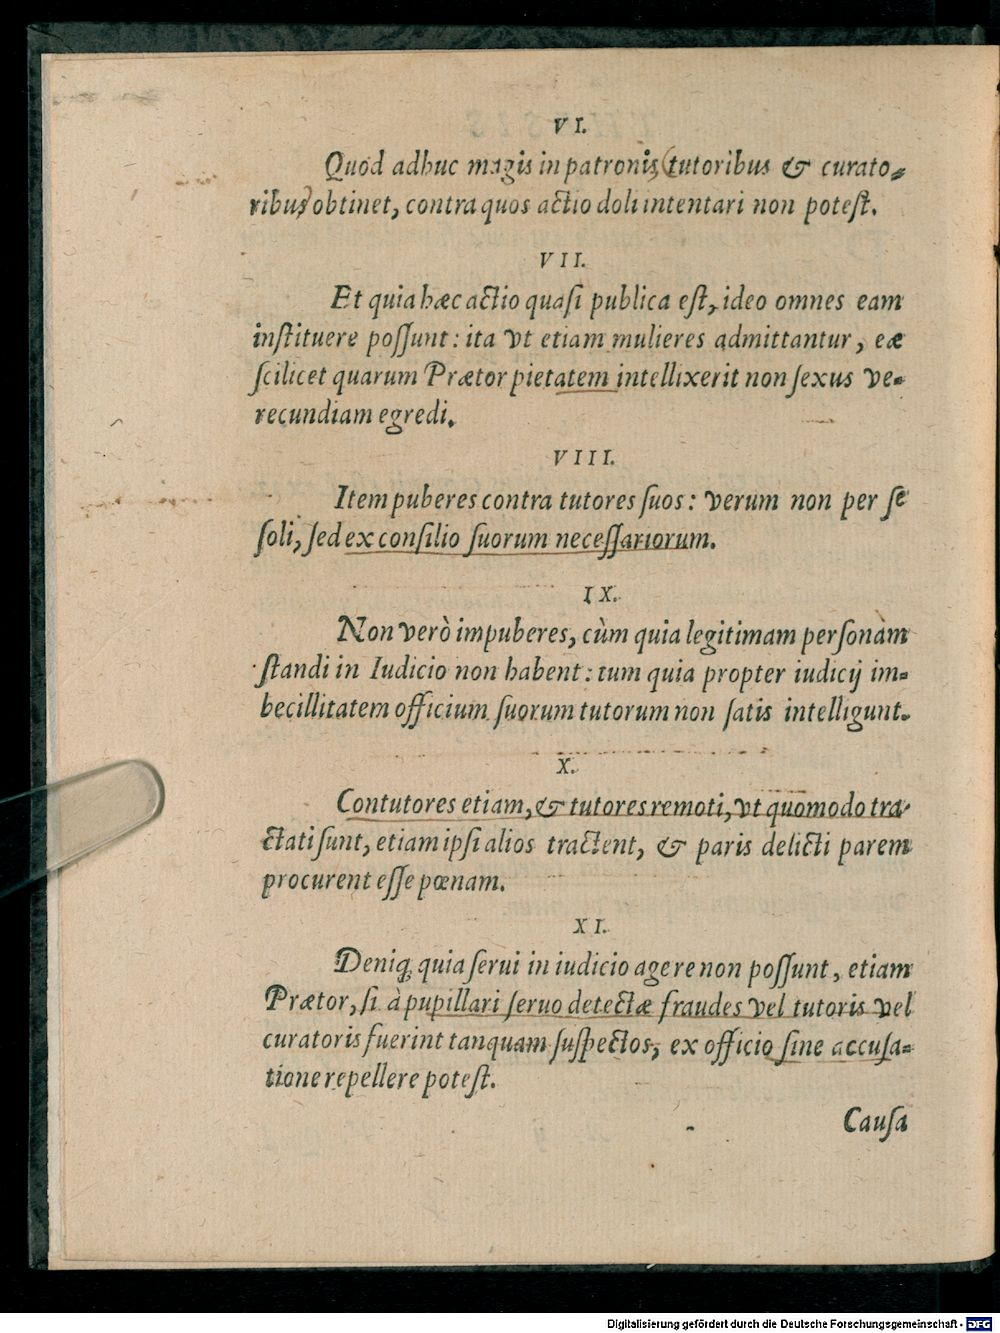 VI.
Quod adhuc magis in patronis (tutoribus & curato-
ribus) obtinet, contra quos actio doli intentari non potest.
VII.
Et quia hæc actio quasi publica est, ideo omnes eam
instituere possunt: ita vt etiam mulieres admittantur, eæ
scilicet quarum Prætor pietatem intellixerit non sexus ve-
recundiam egredi.
VIII.
Item puberes contra tutores suos: verum non per se
soli, sed ex consilio suorum necessariorum.
IX.
Non verò impuberes, cùm quia legitimam personam
standi in Iudicio non habent: tum quia propter iudicij im-
becillitatem officium suorum tutorum non satis intelligunt.
X.
Contutores etiam, & tutores remoti, vt quomodo tra-
ctati sunt, etiam ipsi alios tractent, & paris delicti parem
procurent esse pœnam.
XI.
Deniq; quia serui in iudicio agere non possunt, etiam
Prætor, si à pupillari seruo detectæ fraudes vel tutoris vel
curatoris fuerint tanquam suspectos, ex officio sine accusa-
tione repellere potest.
Causa
Digitalisierung gefördert durch die Deutsche Forschungsgemeinschaft - DFG